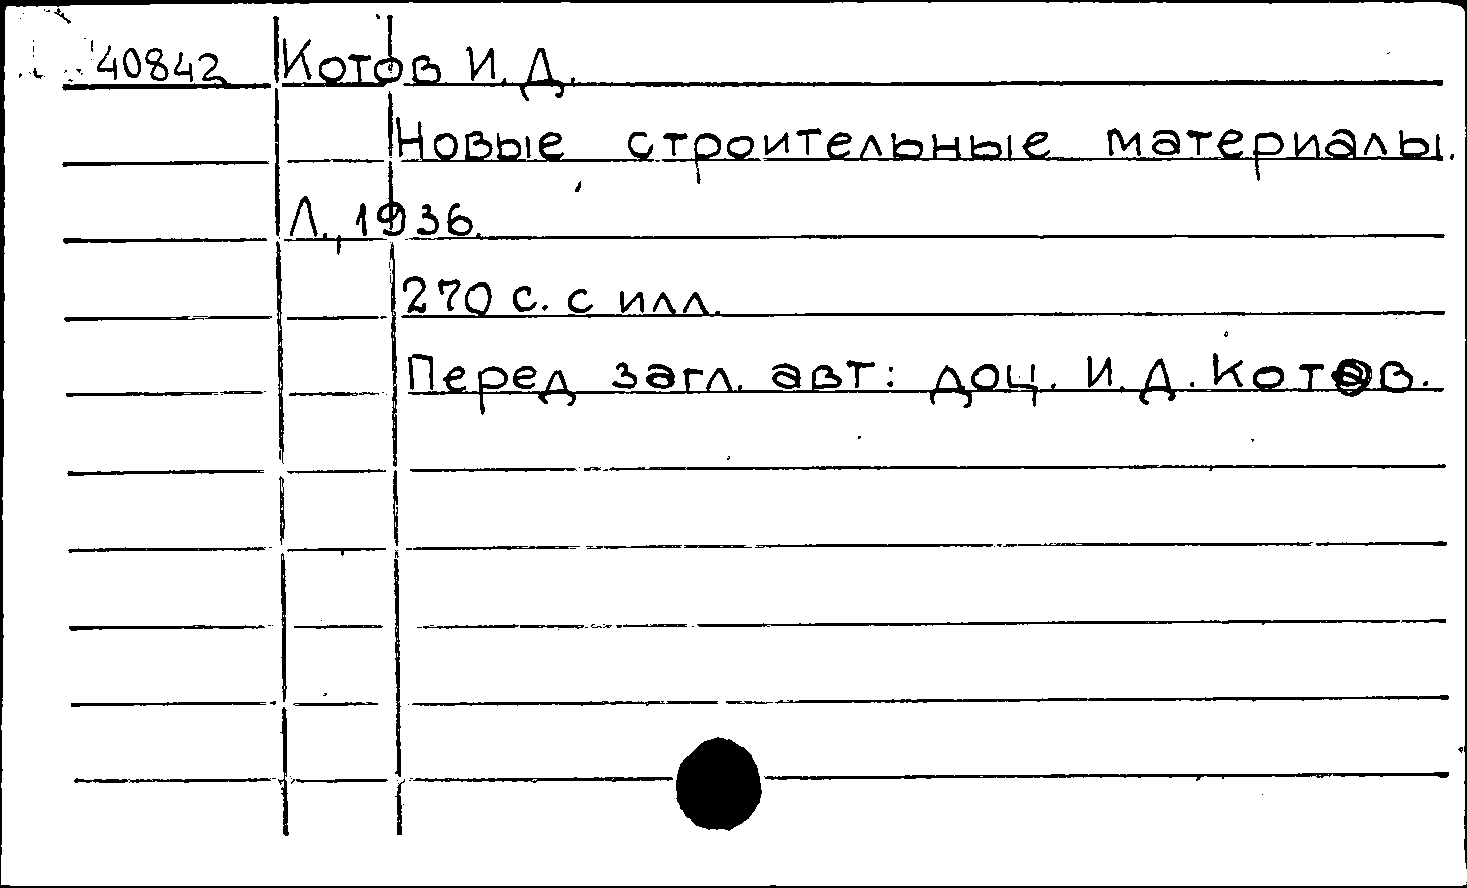 40842 Котов И. Д.
Новые строительные материалы.
Л., 1936.
270 с. с илл.
Перед загл. авт: доц. И. Д. Котов.